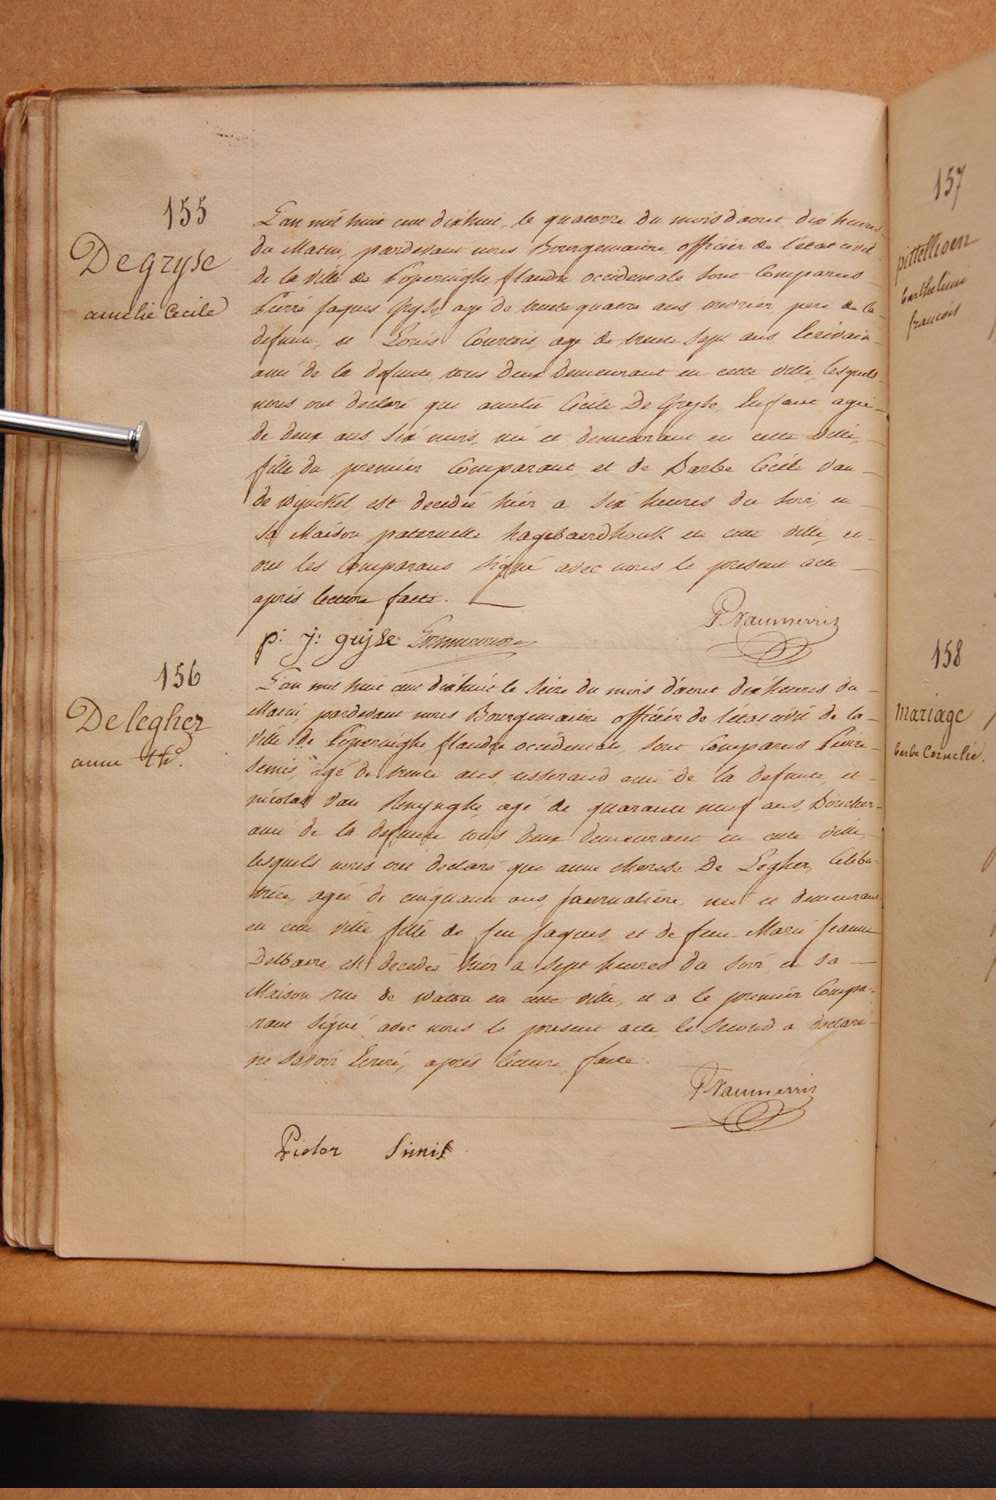 155
Degryse
amelie Cecile
L'an mil huit cent dixhuit, le quatorze du mois d'aout dix heures
du Matin, pardevant nous Bourgemaitre officier de l'état civil
de la ville de Poperinghe flandre occidentale sont Comparus
Pierre Jaques Gryse agé de trente quatre ans ouvrier, pere de la
defunte, et Louis Courtois, agé de trente Sept ans Ecrivain
ami de la defunte tous deux demeurant en cette ville, lesquels
nous ont declaré que amelie Cecile De Gryse, Enfant agée
de deux ans six mois, née et demeurant en cette ville,
fille du premier Comparant, et de Barbe Cecile van
de Wynckel est decedée hier a six heures du soir, en
sa Maison paternelle hagebaerdhouk en cette ville, et
ont les Comparans Signé avec nous le present acte
après lecture faite.
p. j. gryse
156
De legher
anne the.
L'an mil huit cent dixhuit le seize du mois d'aout dix heures du
Matin, pardevant nous Bourgemaitre officier de l'état civil de la
ville de Poperinghe flandre occidentale, sont Comparus Pierre
Semis agé de trente ans tisserand ami de la defunte, et
nicolas Van Renynghe, agé de quarante neuf ans, Boucher
ami de la defunte tous deux demeurant en cette ville,
lesquels nous ont declaré que anne therese De Legher, Celiba-
trice, agée de cinquante ans, journaliere, née et demeurant
en cette ville fille de feu Jaques et de feue Marie Jeanne
Delbaere, est decedée hier a sept heures du soir en sa
Maison rue de watou en cette ville, et a le premier Compa-
rant Signé avec nous le present acte, le Second a declaré
ne Savoir Ecrire, après lecture faite.
Pieter
157
barthelemi
francois
158
Mariage
barbe Cornelie.